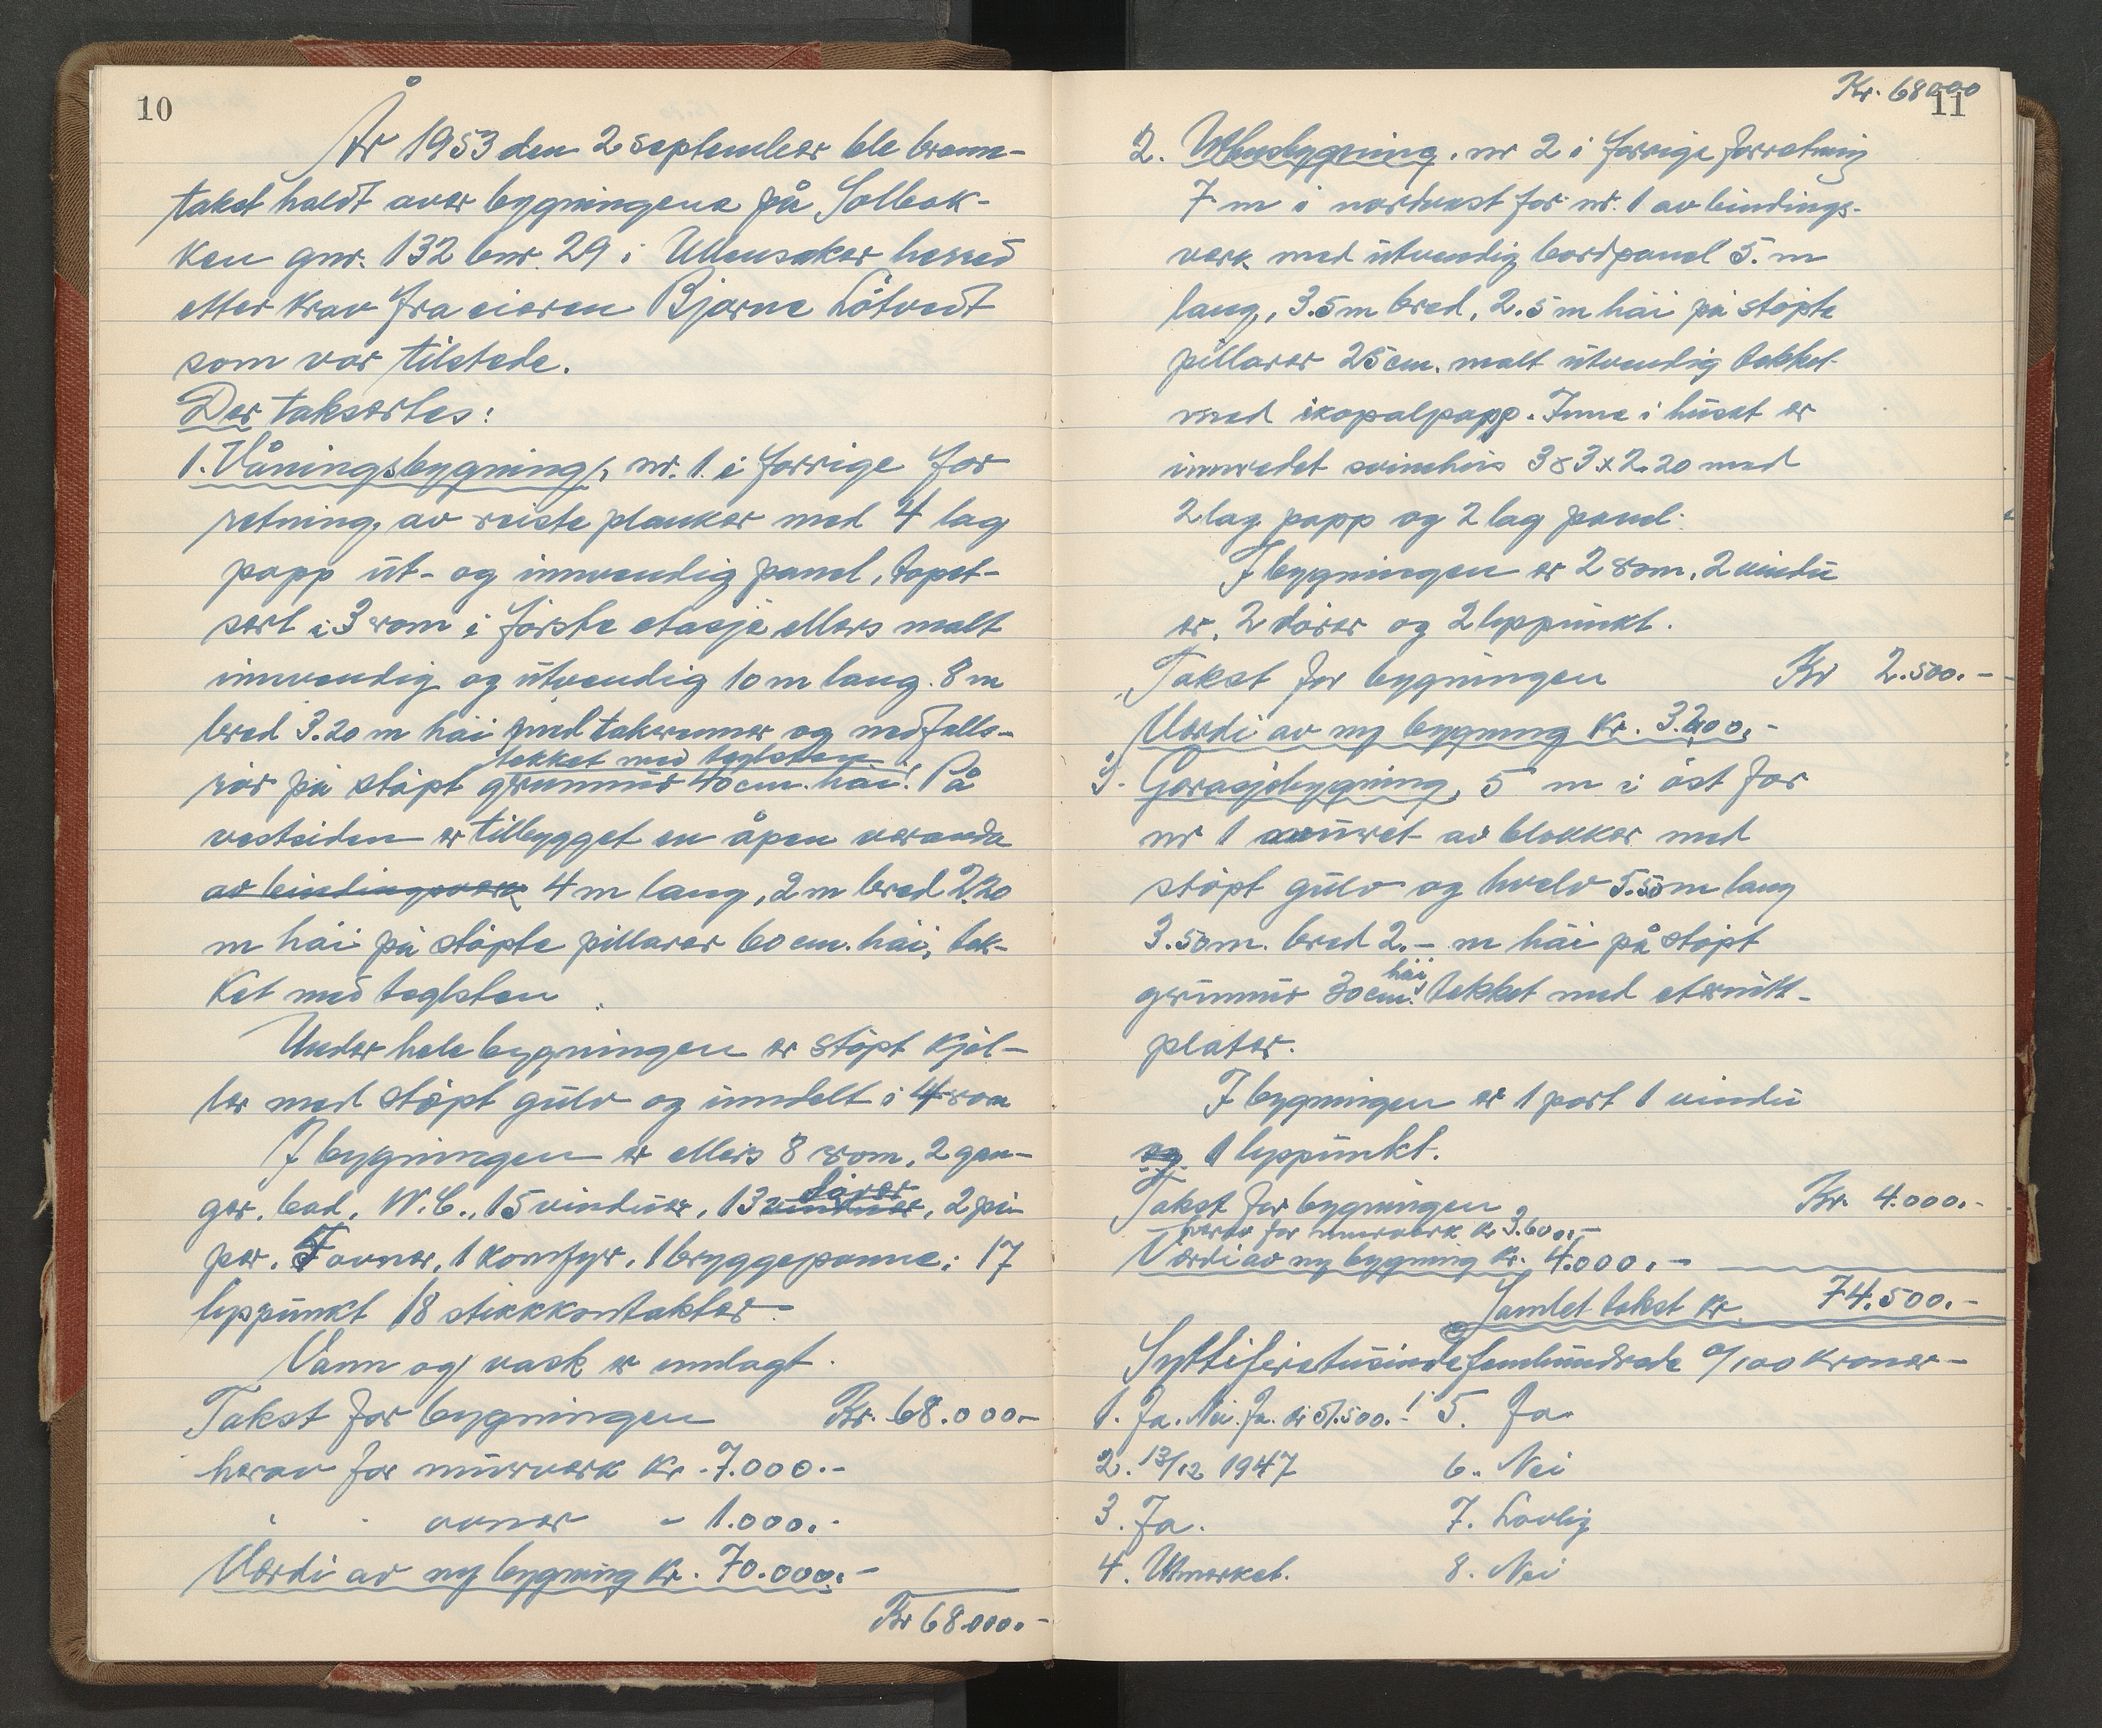 10
År 1953 den 2 september ble brann-
takst holdt over bygningene på Solbak-
ken gnr. 132 bnr. 29 i Ullensaker herred
etter krav fra eieren Bjarne Løtvedt
som var tilstede.
Der taksertes:
1. Våningsbygning, nr. 1. i forrige for
retning, av reiste planker med 4 lag
papp ut- og innvendig panel, tapet-
sert i 3 rom i første etasje ellers malt
innvendig og utvendig 10 m lang. 8 m
bred 3.20 m høi med takrenner og nedfalls-
tekket med teglsten
rør på støpt grunnmur 40 cm. høi. På
vestsiden er tilbygget en åpen veranda
av bindingsverk 4 m lang, 2 m bred 2.20
m høi på støpte pillarer 60 cm. høi, tek-
ket med teglsten
Under hele bygningen er støpt kjel-
ler med støpt gulv og inndelt i 4 rom
I bygningen er ellers 8 rom, 2 gan-
dører
ger, bad, W.C., 15 vinduer, 13 vinduer, 2 pi-
per. 7 ovner, 1 komfyr, 1 bryggepanne, 17
lyspunkt 18 stikkkontakter.
Vann og vask er innlagt.
Takst for bygningen Kr. 68.000.-
herav for murverk kr. 7.000.-
" " ovner - 1.000.-
Verdi av ny bygning kr. 70.000.-
Kr 68.000.-
Kr. 68000
11
2. Uthusbygning, nr 2 i forrige forretning
7 m i nordvest for nr. 1 av bindings-
verk med utvendig bordpanel 5. m
lang, 3.5 m bred, 2.5 m høi på støpte
pillarer 25 cm. malt utvendig tekket
med ikopalpapp. Inne i huset er
innredet svinehus 3x3x2.20 med
2 lag papp og 2 lag panel.
I bygningen er 2 rom, 2 vindu
er, 2 dører og 2 lyspunkt.
Takst for bygningen Kr 2.500.-
Verdi av ny bygning kr. 3.200.-
3. Garasjebygning, 5 m i øst for
nr 1 muret av blokker med
støpt gulv og hvelv 5.50 m lang
3.50 m. bred 2.- m høi på støpt
høi
grunnmur 30 cm. tekket med eternitt-
plater.
I bygningen er 1 port 1 vindu
og 1 lyspunkt.
Takst for bygningen Kr. 4.000.-
herav for murverk kr 3.600.-
Verdi av ny bygning kr. 4.000.-
Samlet takst kr. 74.500.-
Syttifiretusindefemhundrede 0/100 kroner-
1. Ja. Nei. Ja. kr 51.500.-! 5. Ja
2. 13/12 1947 6. Nei
3. Ja. 7. Lovlig
4. Utmerket. 8. Nei